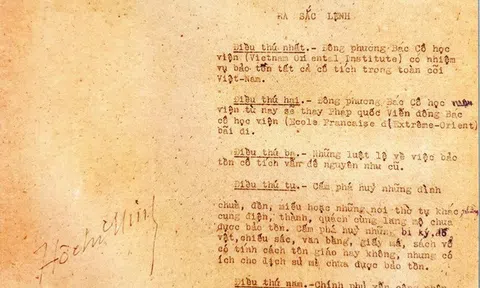 RA SẮC LỆNH
Điều thứ nhất.- Đông phương Bác Cổ học
viện (Vietnam Oriental Institute) có nhiệm
vụ bảo tồn tất cả cổ tích trong toàn cõi
Việt-Nam.
Điều thứ hai.- Đông phương Bác Cổ học viện
viện từ nay sẽ thay Pháp quốc Viễn đông Bác
cổ học viện (Ecole Francaise d'Extrême-Orient)
bãi đi.
Điều thứ ba.- Những luật lệ về việc bảo
tồn cổ tích vẫn để nguyên như cũ.
Điều thứ tư.- Cấm phá huỷ những đình
chuà, đền, miếu hoặc những nơi thờ tự khác, những
cung điện, thành, quách cùng lăng mộ chưa
được bảo tồn. Cấm phá huỷ những bi ký, đồ
vật, chiếu sắc, văn bằng, giấy má, sách vở
có tính cách tôn giáo hay không, nhưng có
ích cho lịch sử mà chưa được bảo tồn.
Điều thứ năm.- Chính phủ vẫn công nhận
Hồ Chí Minh